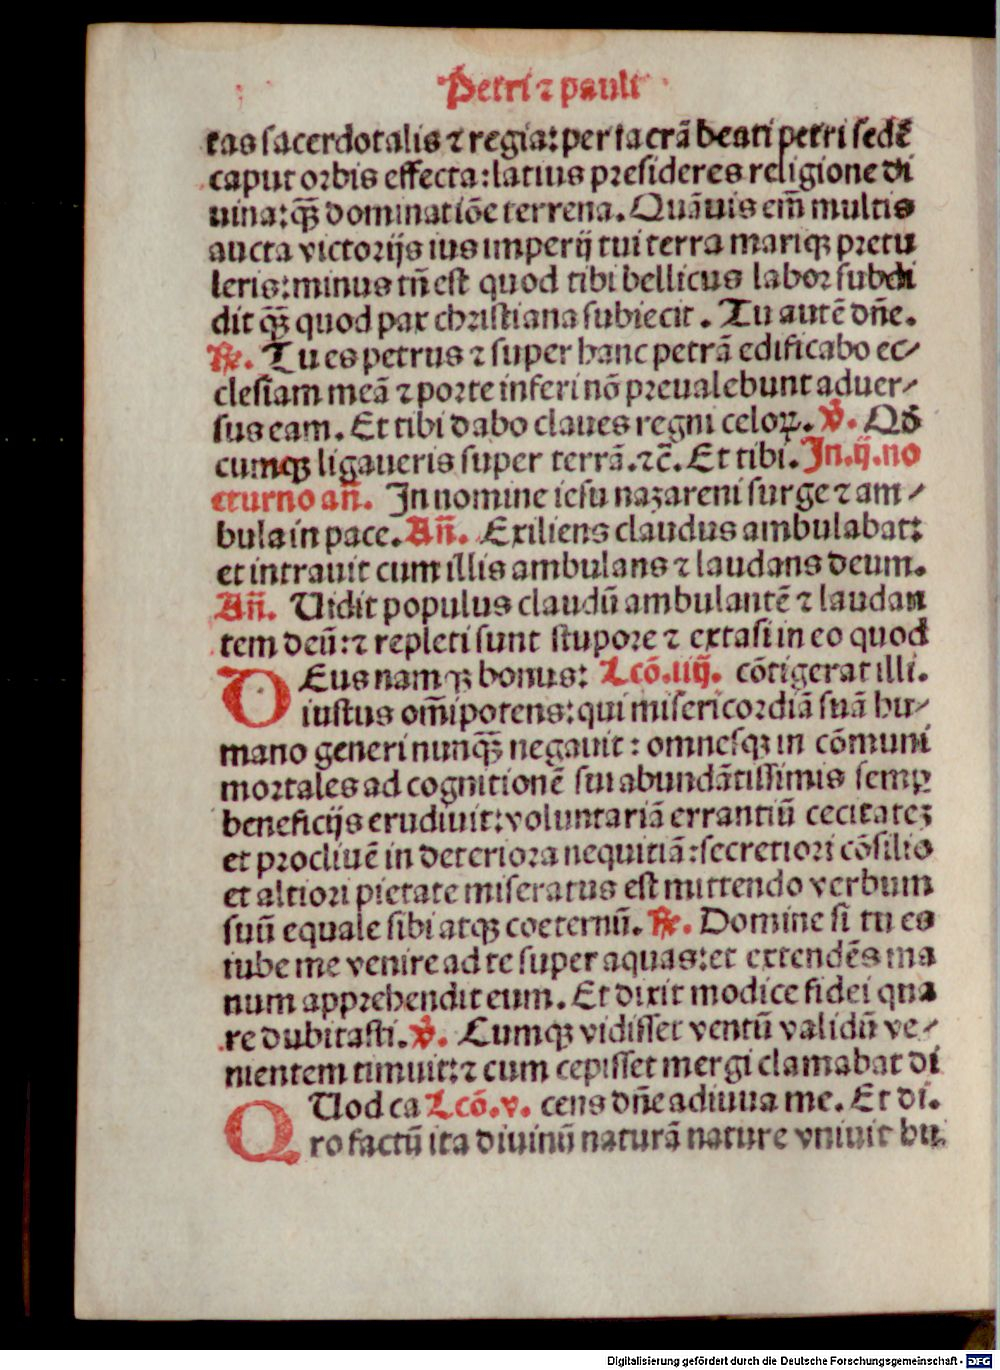 Petri ⁊ pauli
tas sacerdotalis ⁊ regia: per sacrā beati petri sedē
caput orbis effecta: latius presideres religione di
uina: qꝫ̄ dominatiōe terrena. Quāuis em̄ multis
aucta victorijs ius imperij tui terra mariqꝫ pretu
leris: minus tn̄ est quod tibi bellicus labor subdi
dit qꝫ̄ quod pax christiana subiecit. Tu autē dn̄e.
℞. Tu es petrus ⁊ super hanc petrā edificabo ec⸗
clesiam meā ⁊ porte inferi nō preualebunt aduer⸗
sus eam. Et tibi dabo claues regni celoꝝ. ℣. Qd̄
cumqꝫ ligaueris super terrā. ⁊c̄. Et tibi. In .ij. no
cturno an̄. In nomine iesu nazareni surge ⁊ am⸗
bula in pace. An̄. Exiliens claudus ambulabat:
et intrauit cum illis ambulans ⁊ laudans deum.
An̄. Uidit populus claudū ambulantē ⁊ laudan
tem deū: ⁊ repleti sunt stupore ⁊ extasi in eo quod
DEus namqꝫ bonus: Lcō. iiij. cōtigerat illi.
iustus om̄ipotens: qui misericordiā suā hu⸗
mano generi nunqꝫ̄ negauit: omnesqꝫ in cōmuni
mortales ad cognitionē sui abundātissimis semꝑ
beneficijs erudiuit: voluntariā errantiū cecitateꝫ
et procliuē in deteriora nequitiā: secretiori cōsilio
et altiori pietate miseratus est mittendo verbum
suū equale sibi atqꝫ coeternū. ℞. Domine si tu es
iube me venire ad te super aquas: et extendēs ma
num apprehendit eum. Et dixit modice fidei qua
re dubitasti. ℣. Cumqꝫ vidisset ventū validū ve⸗
nientem timuit: ⁊ cum cepisset mergi clamabat di
QUod ca Lcō. v. cens dn̄e adiuua me. Et di.
ro factū ita diuinū naturā nature vniuit hu.
Digitalisierung gefördert durch die Deutsche Forschungsgemeinschaft - DFG